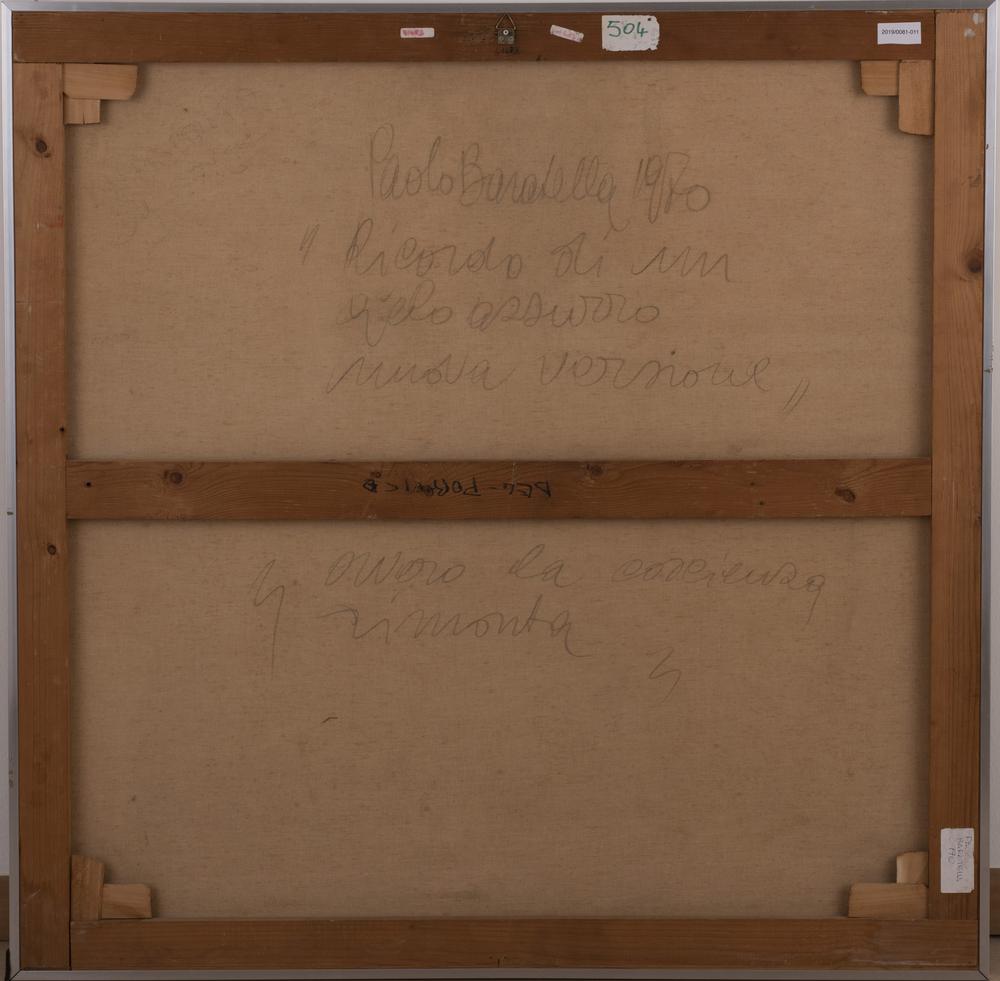 504
2019/0061-011
Paolo Baratella 1970
" Ricordo di un
cielo azzurro
nuova versione "
DEL-PORTICO
ovvero la coscienza
rimonta